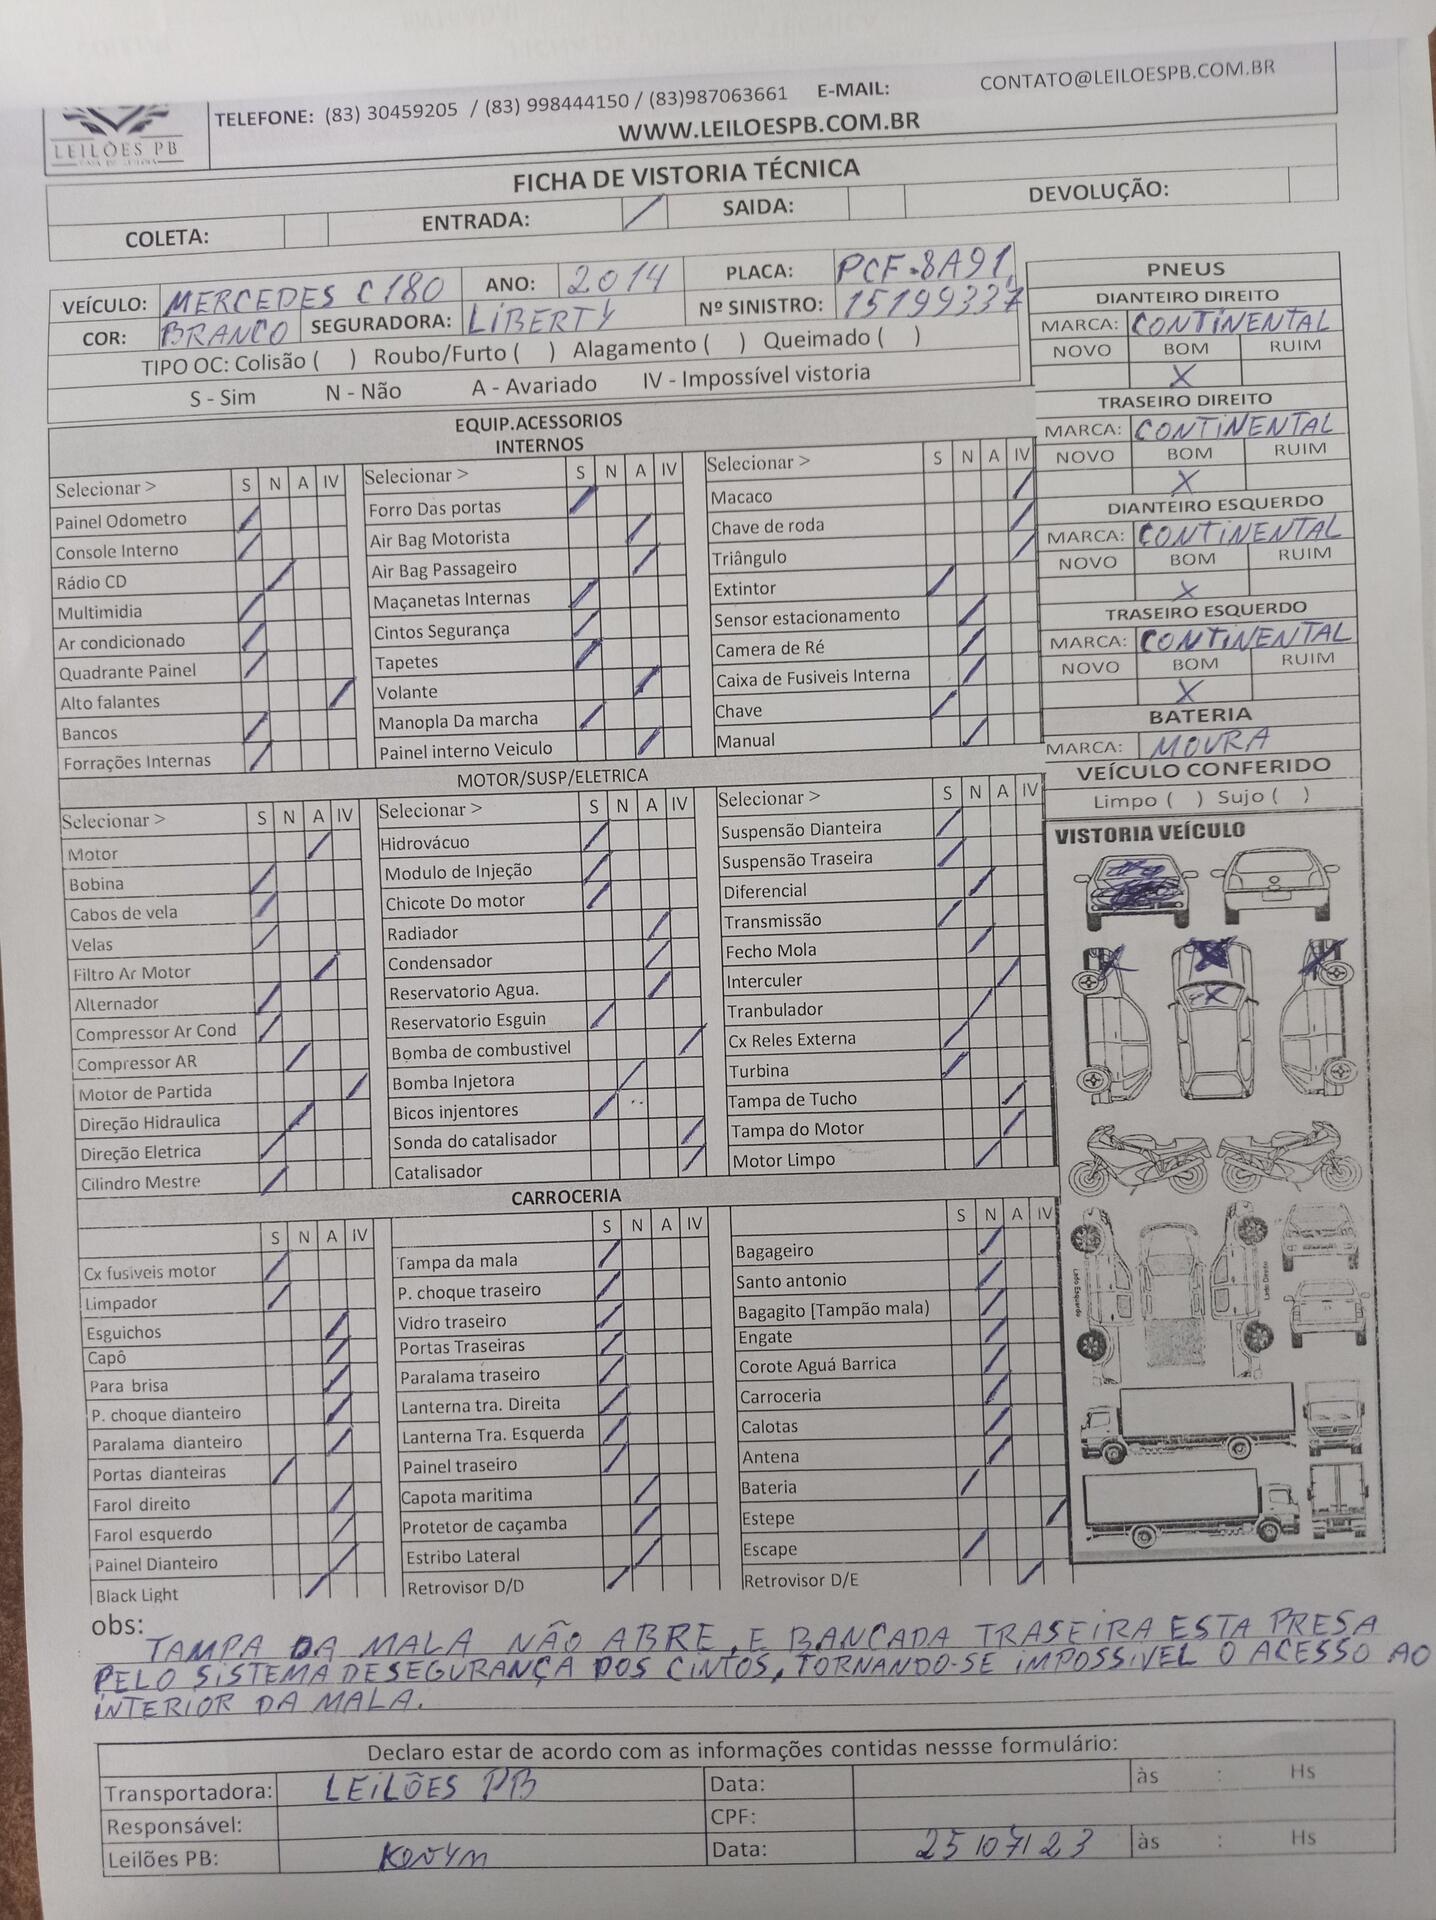 LEILÕES PB
TELEFONE: (83) 30459205 / (83) 998444150 / (83)987063661 E-MAIL: CONTATO@LEILOESPB.COM.BR
WWW.LEILOESPB.COM.BR
FICHA DE VISTORIA TÉCNICA
COLETA: ENTRADA: / SAIDA: DEVOLUÇÃO:
VEÍCULO: MERCEDES C180 ANO: 2014 PLACA: PCF-8A91
COR: BRANCO SEGURADORA: LIBERTY Nº SINISTRO: 15199337
TIPO OC: Colisão ( ) Roubo/Furto ( ) Alagamento ( ) Queimado ( )
S - Sim N - Não A - Avariado IV - Impossível vistoria
EQUIP.ACESSORIOS
INTERNOS
Selecionar > S N A IV
Painel Odometro /
Console Interno /
Rádio CD /
Multimidia /
Ar condicionado /
Quadrante Painel /
Alto falantes /
Bancos /
Forrações Internas /
Selecionar > S N A IV
Forro Das portas /
Air Bag Motorista /
Air Bag Passageiro /
Maçanetas Internas /
Cintos Segurança /
Tapetes /
Volante /
Manopla Da marcha /
Painel interno Veiculo /
Selecionar > S N A IV
Macaco /
Chave de roda /
Triângulo /
Extintor /
Sensor estacionamento /
Camera de Ré /
Caixa de Fusiveis Interna /
Chave /
Manual /
PNEUS
DIANTEIRO DIREITO
MARCA: CONTINENTAL
NOVO BOM RUIM
X
TRASEIRO DIREITO
MARCA: CONTINENTAL
NOVO BOM RUIM
X
DIANTEIRO ESQUERDO
MARCA: CONTINENTAL
NOVO BOM RUIM
X
TRASEIRO ESQUERDO
MARCA: CONTINENTAL
NOVO BOM RUIM
X
BATERIA
MARCA: MOURA
VEÍCULO CONFERIDO
Limpo ( ) Sujo ( )
VISTORIA VEÍCULO
Lado Esquerdo
Lado Direito
MOTOR/SUSP/ELETRICA
Selecionar > S N A IV
Motor /
Bobina /
Cabos de vela /
Velas /
Filtro Ar Motor /
Alternador /
Compressor Ar Cond /
Compressor AR /
Motor de Partida /
Direção Hidraulica /
Direção Eletrica /
Cilindro Mestre /
Selecionar > S N A IV
Hidrovácuo /
Modulo de Injeção /
Chicote Do motor /
Radiador /
Condensador /
Reservatorio Agua. /
Reservatorio Esguin /
Bomba de combustivel /
Bomba Injetora /
Bicos injentores /
Sonda do catalisador /
Catalisador /
Selecionar > S N A IV
Suspensão Dianteira /
Suspensão Traseira /
Diferencial /
Transmissão /
Fecho Mola /
Interculer /
Tranbulador /
Cx Reles Externa /
Turbina /
Tampa de Tucho /
Tampa do Motor /
Motor Limpo /
CARROCERIA
S N A IV
Cx fusiveis motor /
Limpador /
Esguichos /
Capô /
Para brisa /
P. choque dianteiro /
Paralama dianteiro /
Portas dianteiras /
Farol direito /
Farol esquerdo /
Painel Dianteiro /
Black Light /
S N A IV
Tampa da mala /
P. choque traseiro /
Vidro traseiro /
Portas Traseiras /
Paralama traseiro /
Lanterna tra. Direita /
Lanterna Tra. Esquerda /
Painel traseiro /
Capota maritima /
Protetor de caçamba /
Estribo Lateral /
Retrovisor D/D /
S N A IV
Bagageiro /
Santo antonio /
Bagagito [Tampão mala) /
Engate /
Corote Aguá Barrica /
Carroceria /
Calotas /
Antena /
Bateria /
Estepe /
Escape /
Retrovisor D/E /
obs:
TAMPA DA MALA NÃO ABRE, E BANCADA TRASEIRA ESTA PRESA
PELO SISTEMA DE SEGURANÇA DOS CINTOS, TORNANDO-SE IMPOSSIVEL O ACESSO AO
INTERIOR DA MALA.
Declaro estar de acordo com as informações contidas nessse formulário:
Transportadora: LEILÕES PB Data: às : Hs
Responsável: CPF:
Leilões PB: Data: 25/07/23 às : Hs